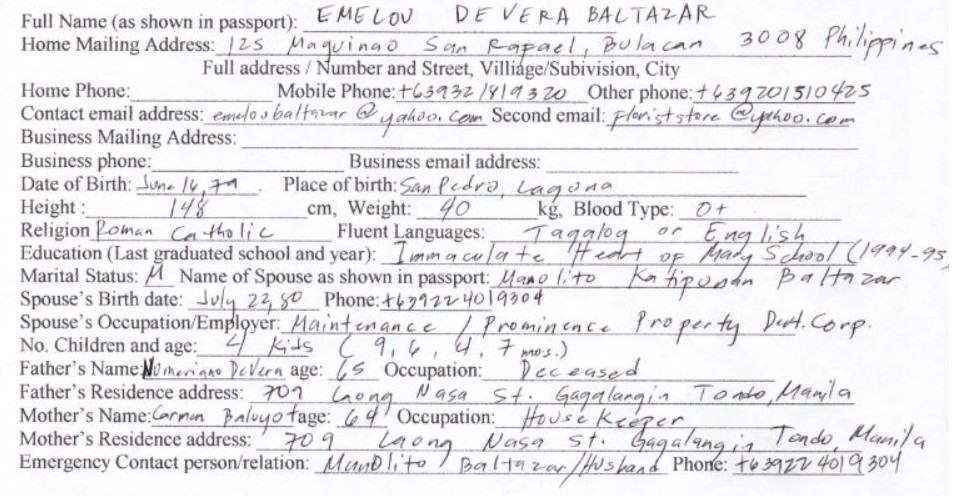 Full Name (as shown in passport): EMELOU DE VERA BALTAZAR
Home Mailing Address: 125 Maguinao San Rapael, Bulacan 3008 Philippines
Full address / Number and Street, Villiage/Subivision, City
Home Phone: Mobile Phone: +639321819320 Other phone: +639201510425
Contact email address: emeloubaltazar@yahoo.com Second email: floriststore@yahoo.com
Business Mailing Address:
Business phone: Business email address:
Date of Birth: June 16, 79 Place of birth: San Pedro, Laguna
Height : 148 cm, Weight: 40 kg, Blood Type: O+
Religion Roman Catholic Fluent Languages: Tagalog or English
Education (Last graduated school and year): Immaculate Heart of Mary School (1994-95)
Marital Status: M Name of Spouse as shown in passport: Manolito Katipunan Baltazar
Spouse's Birth date: July 22, 80 Phone: +639224019304
Spouse's Occupation/Employer: Maintenance / Prominence Property Devt. Corp.
No. Children and age: 4 kids ( 9, 6, 4, 7 mos.)
Father's Name: Numeriano DeVera age: 65 Occupation: Deceased
Father's Residence address: 709 Laong Nasa St. Gagalangin Tondo, Manila
Mother's Name: Carmen Baluyot age: 64 Occupation: House Keeper
Mother's Residence address: 709 Laong Nasa St. Gagalangin Tondo, Manila
Emergency Contact person/relation: Manolito Baltazar/Husband Phone: +639224019304